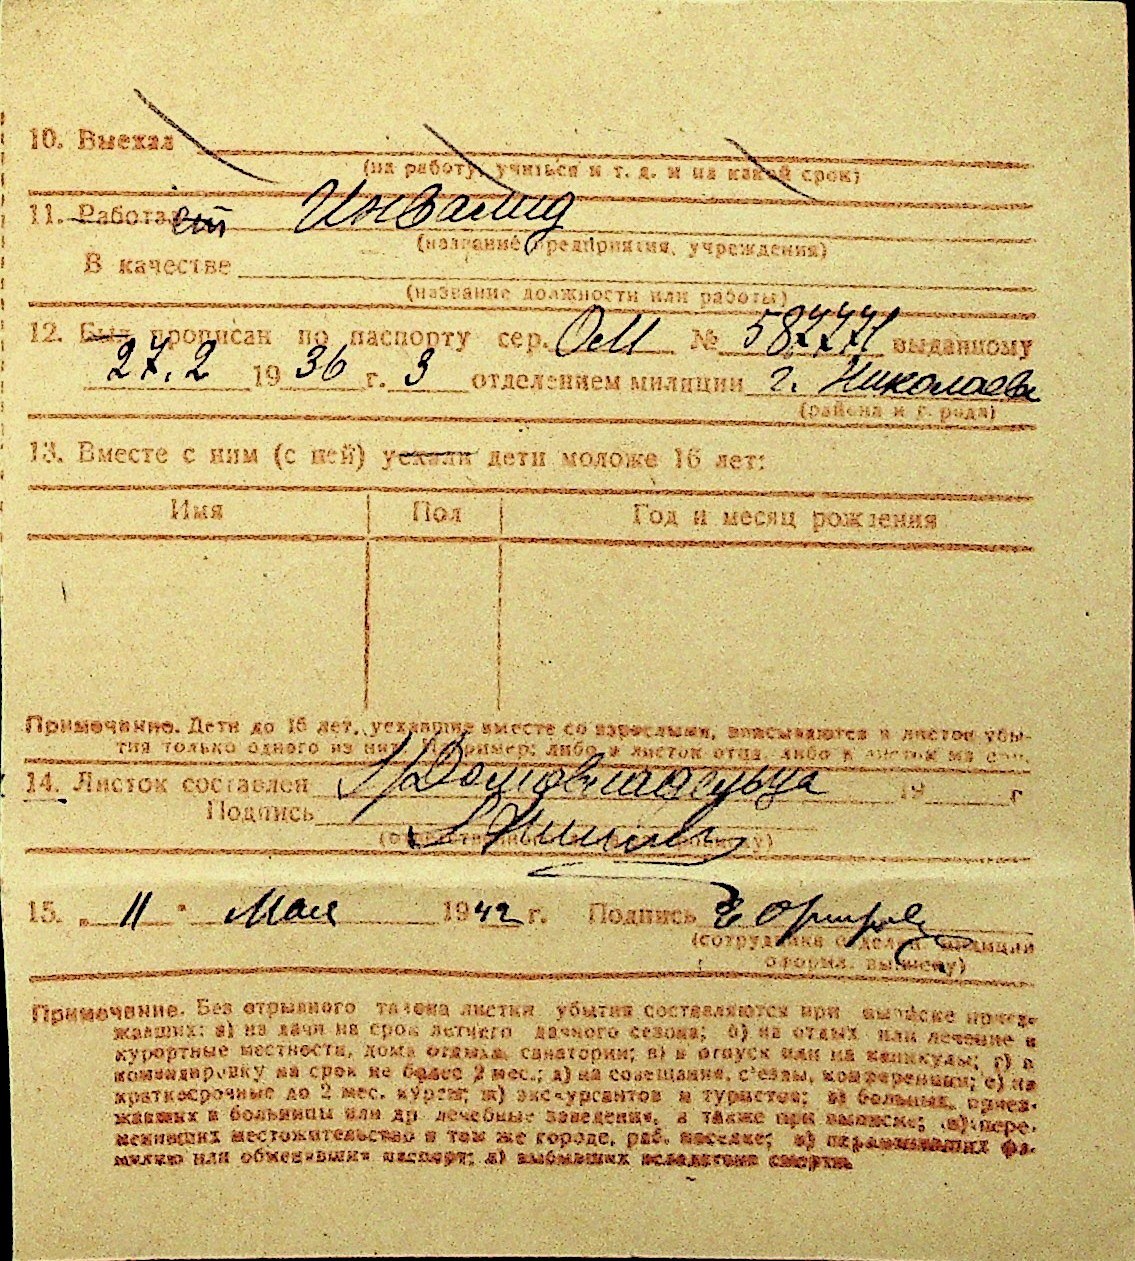 10. Выехал
(на работу, учиться и т. д. и на какой срок)
11. Работает Инвалид
(название предприятия, учреждения)
В качестве
(название должности или работы)
12. Был прописан по паспорту сер. ОМ № 587771 выданному
27.2 1936 г. 3 отделением милиции г. Николаев
(района и города)
13. Вместе с ним (с ней) уехали дети моложе 16 лет:
Имя Пол Год и месяц рождения
Примечание. Дети до 16 лет, уехавшие вместе со взрослыми, вписываются в листок убы-
тия только одного из них. Например: либо в листок отца, либо в листок ма
14. Листок составлен Домовладельца 19 г
Подпись
15. „11" Мая 1942 г. Подпись
(сотрудника отдела милиции
оформ. выписку)
Примечание. Без отрывного талона листки убытия составляются при выписке приез-
жавших: а) на дачи на срок летнего дачного сезона; б) на отдых или лечение в
курортные местности, дома отдыха, санатории; в) в отпуск или на каникулы; г) в
командировку на срок не более 2 мес.; д) на совещания, съезды, конференции; е) на
краткосрочные до 2 мес. курсы; ж) экскурсантов и туристов; з) больных, приез-
жавших в больницы или др. лечебные заведения, а также при выписке; и) пере-
менивших местожительство в том же городе, раб. поселке; к) переменивших фа-
милию или обменявших паспорт; л) выбывших вследствие смерти.